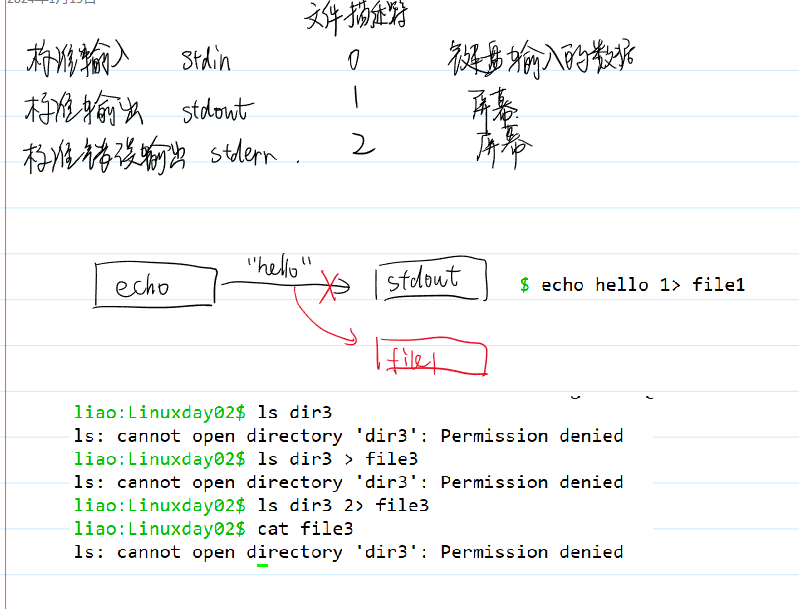 2024年1月15日
文件描述符
标准输入 stdin 0 键盘输入的数据
标准输出 stdout 1 屏幕
标准错误输出 stderr. 2 屏幕
echo "hello" stdout $ echo hello 1> file1
file1
liao:Linuxday02$ ls dir3
ls: cannot open directory 'dir3': Permission denied
liao:Linuxday02$ ls dir3 > file3
ls: cannot open directory 'dir3': Permission denied
liao:Linuxday02$ ls dir3 2> file3
liao:Linuxday02$ cat file3
ls: cannot open directory 'dir3': Permission denied